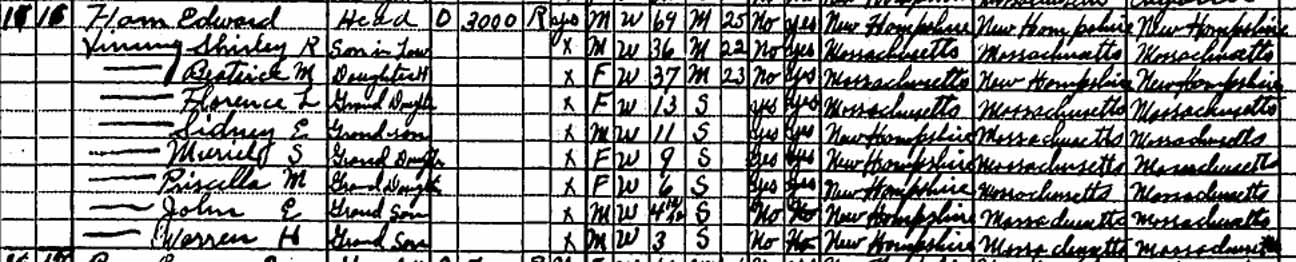 Ham Edward Head O 3000 R yes M W 64 M 25 No yes New Hampshire New Hampshire New Hampshire
Shirley R Son in Law X M W 36 M 22 No yes Massachusetts Massachusetts Massachusetts
Beatrice M Daughter X F W 37 M 23 No Yes Massachusetts New Hampshire New Hampshire
Florence L Grand Daughter X F W 13 S yes yes Massachusetts Massachusetts Massachusetts
Sidney E Grandson X M W 11 S Yes Yes New Hampshire Massachusetts Massachusetts
Muriel S Grand Daughter X F W 9 S Yes Yes New Hampshire Massachusetts Massachusetts
Priscilla M Grand Daughter X F W 6 S Yes Yes New Hampshire Massachusetts Massachusetts
John E Grand Son X M W S No No New Hampshire Massachusetts Massachusetts
Warren H Grand Son X M W 3 S No No New Hampshire Massachusetts Massachusetts